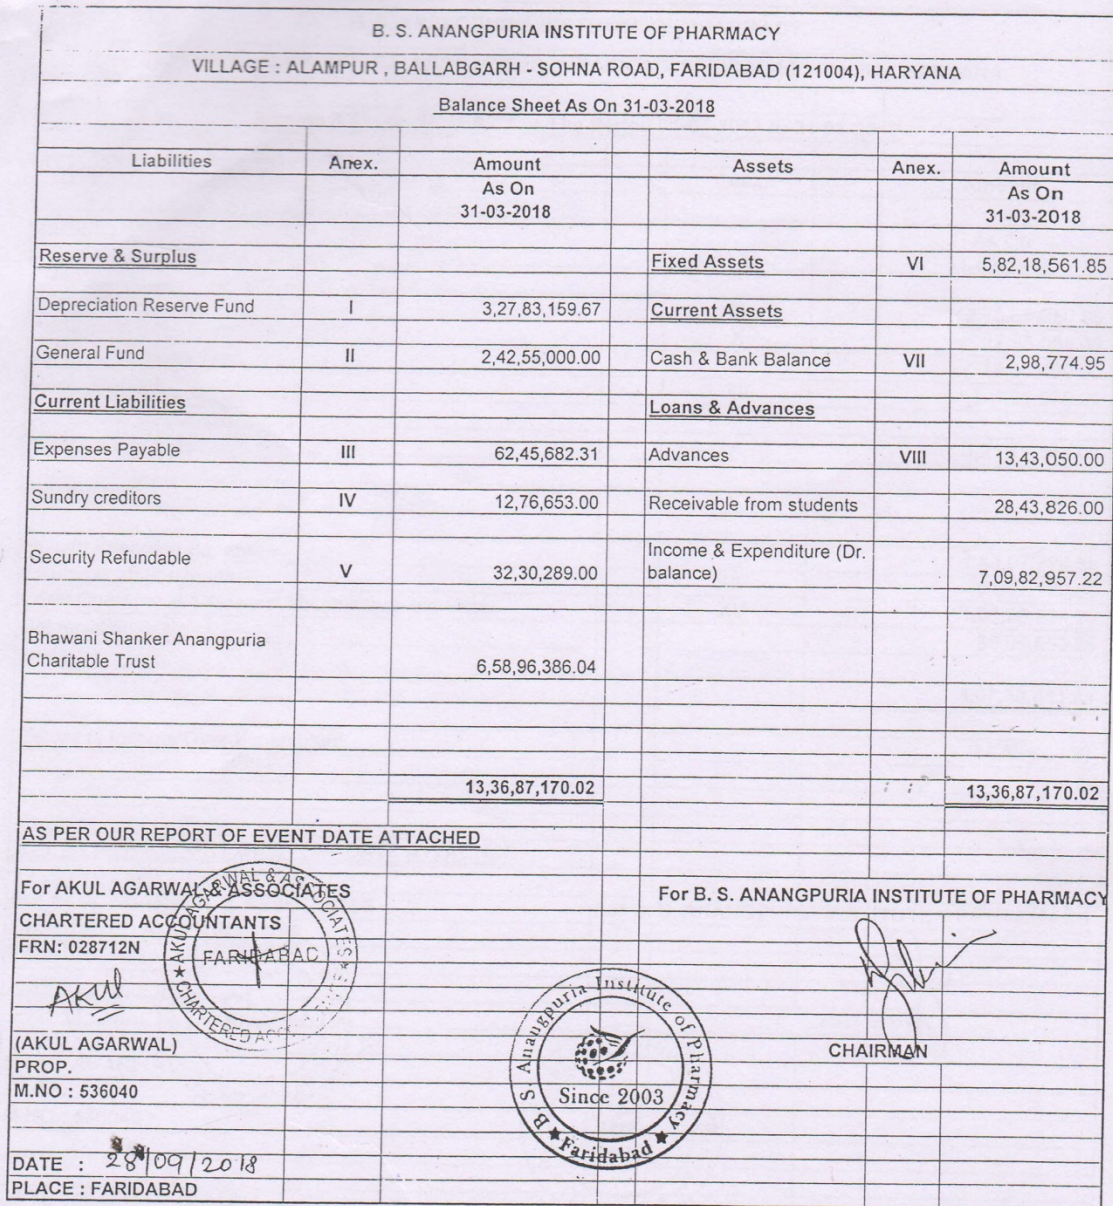 B. S. ANANGPURIA INSTITUTE OF PHARMACY
VILLAGE : ALAMPUR , BALLABGARH - SOHNA ROAD, FARIDABAD (121004), HARYANA
Balance Sheet As On 31-03-2018
Liabilities Anex. Amount Assets Anex. Amount
As On As On
31-03-2018 31-03-2018
Reserve & Surplus Fixed Assets VI 5,82,18,561.85
Depreciation Reserve Fund I 3,27,83,159.67 Current Assets
General Fund II 2,42,55,000.00 Cash & Bank Balance VII 2,98,774.95
Current Liabilities Loans & Advances
Expenses Payable III 62,45,682.31 Advances VIII 13,43,050.00
Sundry creditors IV 12,76,653.00 Receivable from students 28,43,826.00
Security Refundable V 32,30,289.00 Income & Expenditure (Dr.
balance) 7,09,82,957.22
Bhawani Shanker Anangpuria
Charitable Trust 6,58,96,386.04
13,36,87,170.02 13,36,87,170.02
AS PER OUR REPORT OF EVENT DATE ATTACHED
For AKUL AGARWAL & ASSOCIATES For B. S. ANANGPURIA INSTITUTE OF PHARMACY
CHARTERED ACCOUNTANTS
FRN: 028712N
AKUL AGARWAL & ASSOCIATES
FARIDABAD
CHARTERED
Akul
B. S. Anangpuria Institute of Pharmacy
Since 2003
Faridabad
(AKUL AGARWAL) CHAIRMAN
PROP.
M.NO : 536040
DATE : 28/09/2018
PLACE : FARIDABAD